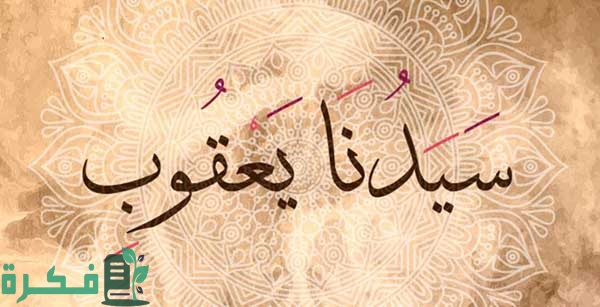 سَيَدُنَا يَعْقُوبِ
فكرة